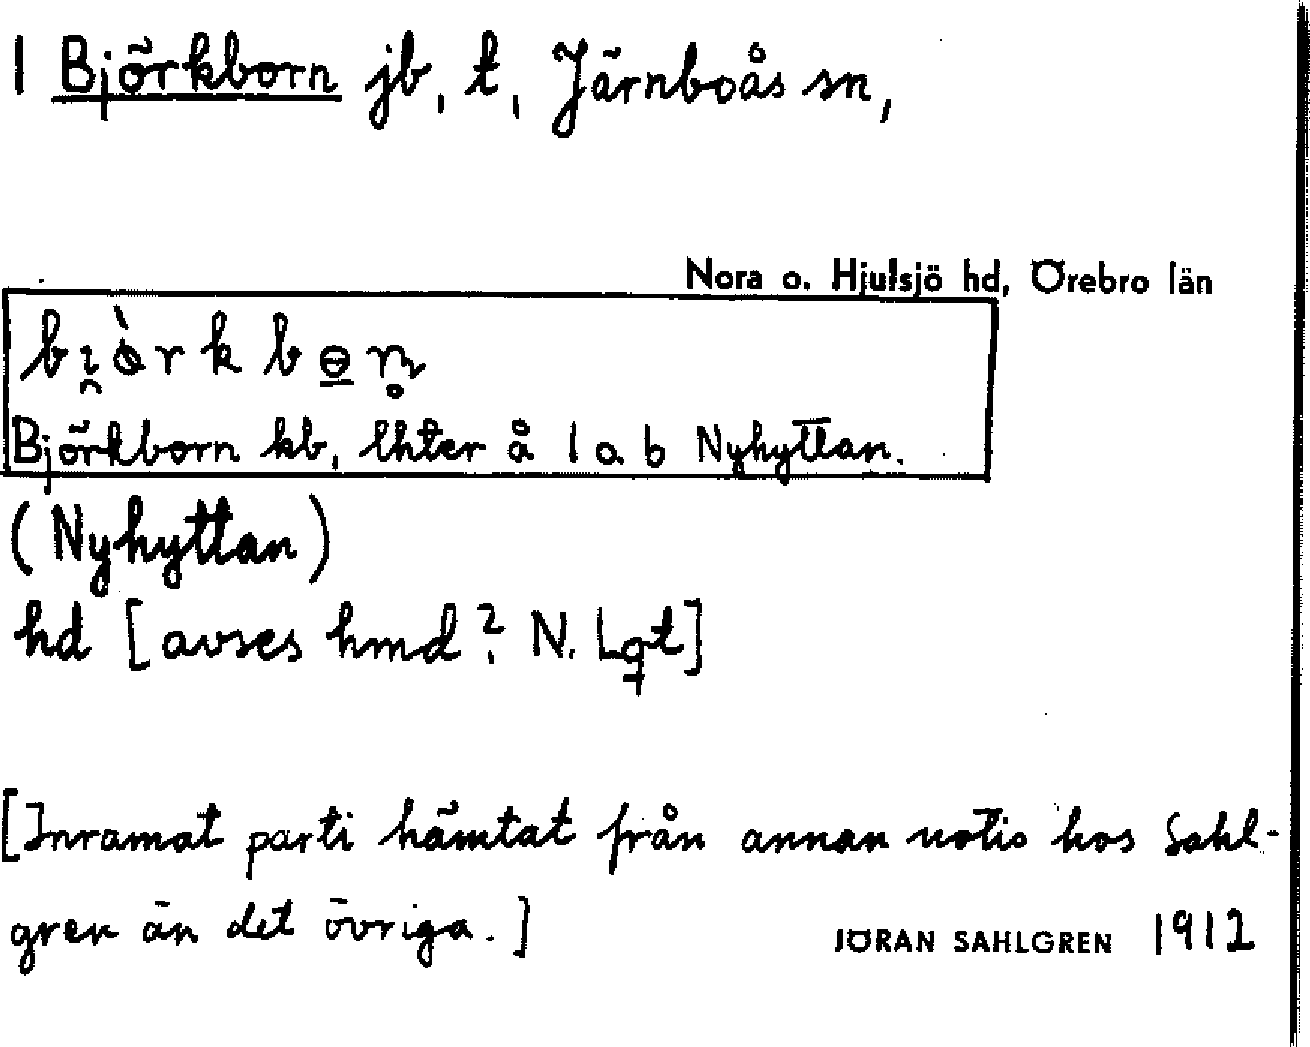 1 Björkborn jb, t, Järnboås sn,
Nora o. Hjulsjö hd, Örebro län
Björkborn kb, lhter å 1 a b Nyhyttan.
(Nyhyttan)
hd [avses hmd? N. Lqt]
[Inramat parti hämtat från annan notis hos Sahl-
gren än det övriga.]
JÖRAN SAHLGREN 1912